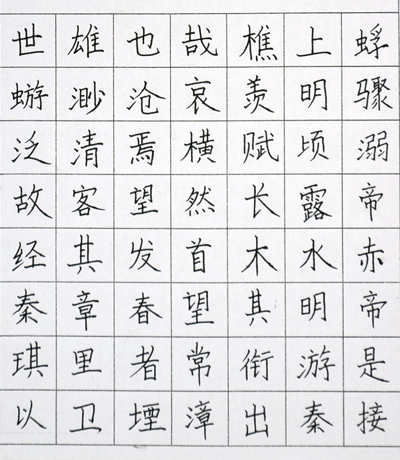 世雄也哉樵上蜉
蝣渺沧哀羡明骤
泛清焉横赋顷溺
故客望然长露帝
经其发首木水赤
秦章春望其明帝
琪里者常衔游是
以卫堙漳出秦接